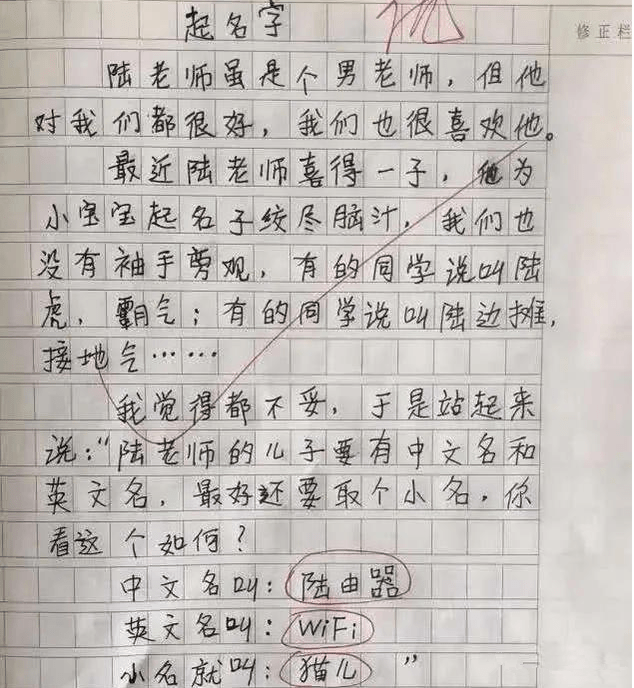 起名字
修正栏
陆老师虽是个男老师，但他
对我们都很好，我们也很喜欢他。
最近陆老师喜得一子，他为
小宝宝起名子绞尽脑汁，我们也
没有袖手旁观，有的同学说叫陆
虎，霸气；有的同学说叫陆边摊，
接地气……
我觉得都不妥，于是站起来
说：“陆老师的儿子要有中文名和
英文名，最好还要取个小名，你
看这个如何？
中文名叫：陆由器
英文名叫：WiFi
小名就叫：猫儿”